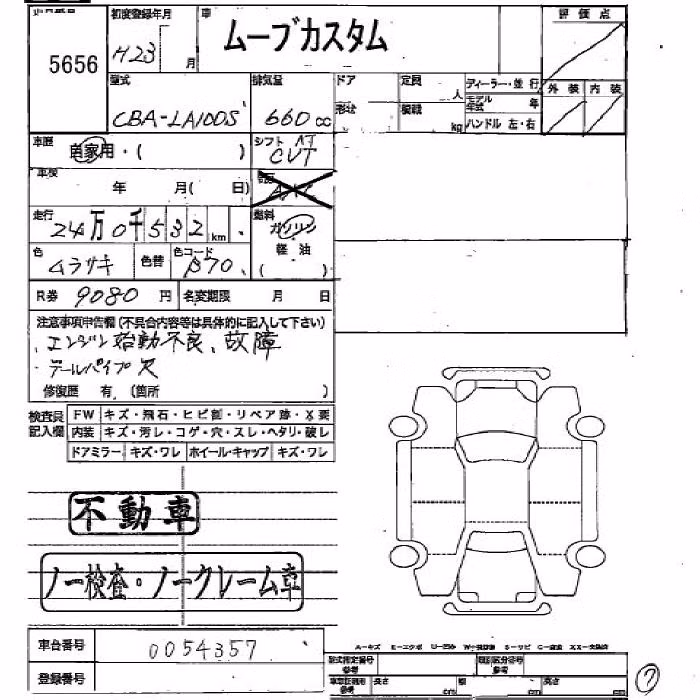 出品番号 初度登録年月 車 ムーブカスタム 評価点
5656 H23 月
型式 排気量 ドア 定員 人 ディーラー・並行 外装 内装
CBA-LA100S 660cc 形状 積載 kg モデル年式 年
ハンドル 左・右
車歴 自家用・( ) シフト AT CVT
車検 年 月( 日) AAC
走行 24万0千532km 燃料 ガソリン
軽油
( )
色 ムラサキ 色替 色コード P70
R券 9080円 名変期限 月 日
注意事項申告欄(不具合内容等は具体的に記入して下さい)
、エンジン始動不良、故障
・テールパイプ欠
修復歴 有.(箇所 )
検査員記入欄 FW キズ・飛石・ヒビ割・リペア跡・X要
内装 キズ・汚レ・コゲ・穴・スレ・ヘタリ・破レ
ドアミラー キズ・ワレ ホイール・キャップ キズ・ワレ
不動車
ノー検査・ノークレーム車
車台番号 0054357
登録番号
A-キズ E-エクボ
型式指定番号 参考 類別区分番号 参考
長さ cm 幅 cm
7